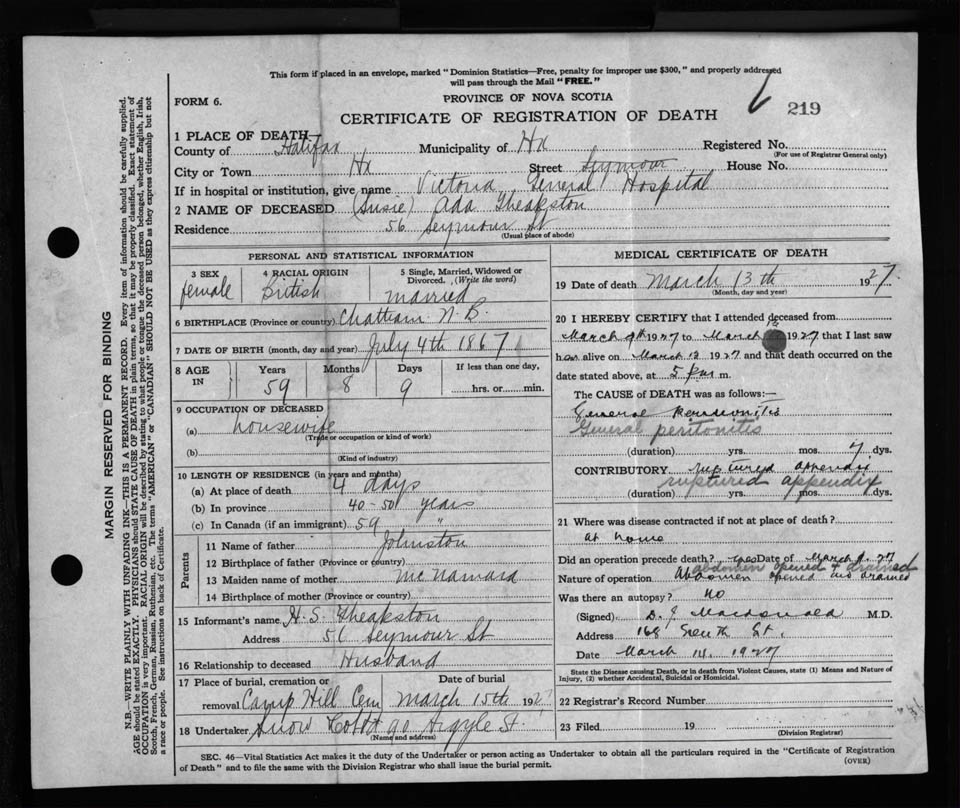 This form if placed in an envelope, marked "Dominion Statistics—Free, penalty for improper use $300," and properly addressed
will pass through the Mail "FREE."
FORM 6.
PROVINCE OF NOVA SCOTIA
219
CERTIFICATE OF REGISTRATION OF DEATH
1 PLACE OF DEATH—
County of Halifax Municipality of Hx Registered No.
(For use of Registrar General only)
City or Town Hx Street Seymour House No.
If in hospital or institution, give name Victoria General Hospital
2 NAME OF DECEASED (Susie) Ada Theakston
Residence 56 Seymour St
(Usual place of abode)
PERSONAL AND STATISTICAL INFORMATION
3 SEX
female
4 RACIAL ORIGIN
British
5 Single, Married, Widowed or
Divorced. (Write the word)
married
6 BIRTHPLACE (Province or country) Chatham N.B.
7 DATE OF BIRTH (month, day and year) July 4th 1867
8 AGE
IN
Years
59
Months
8
Days
9
If less than one day,
hrs. or min.
9 OCCUPATION OF DECEASED
(a) housewife
(Trade or occupation or kind of work)
(b)
(Kind of industry)
10 LENGTH OF RESIDENCE (in years and months)
(a) At place of death 4 days
(b) In province 40-50 years
(c) In Canada (if an immigrant) 59 "
Parents
11 Name of father Johnston
12 Birthplace of father (Province or country)
13 Maiden name of mother McNamara
14 Birthplace of mother (Province or country)
15 Informant's name H. S. Theakston
Address Seymour St
16 Relationship to deceased Husband
17 Place of burial, cremation or Date of burial
removal Camp Hill Cem March 15th 1927
18 Undertaker Snow 90 Argyle St.
(Name and address)
MEDICAL CERTIFICATE OF DEATH
19 Date of death March 13th 1927.
(Month, day and year)
20 I HEREBY CERTIFY that I attended deceased from
March 9th 1927 to March 1927 that I last saw
her alive on March 13 1927 and that death occurred on the
date stated above, at 5 pm m.
The CAUSE of DEATH was as follows:—
General Peritonitis
General peritonitis
(duration) yrs. mos. 7 dys.
CONTRIBUTORY ruptured appendix
ruptured appendix
(duration) yrs. mos. dys.
21 Where was disease contracted if not at place of death?
at home
Did an operation precede death? yes Date of March 9. 27
abdomen opened & drained
Nature of operation Abdomen opened and drained
Was there an autopsy? no
(Signed) D. J. Macdonald M.D.
Address 168 South St.
Date March 14. 1927
State the Disease causing Death, or in death from Violent Causes, state (1) Means and Nature of
Injury, (2) whether Accidental, Suicidal or Homicidal.
22 Registrar's Record Number
23 Filed 19
(Division Registrar)
SEC. 46—Vital Statistics Act makes it the duty of the Undertaker or person acting as Undertaker to obtain all the particulars required in the "Certificate of Registration
of Death" and to file the same with the Division Registrar who shall issue the burial permit.
(OVER)
MARGIN RESERVED FOR BINDING
N.B.—WRITE PLAINLY WITH UNFADING INK—THIS IS A PERMANENT RECORD. Every item of information should be carefully supplied.
AGE should be stated EXACTLY. PHYSICIANS should STATE CAUSE OF DEATH in plain terms, so that it may be properly classified. Exact statement of
OCCUPATION is very important. RACIAL ORIGIN will be described by stating to what people or tongue the deceased person belonged, whether English, Irish,
Scotch, French, German, Russian, Ruthenian, etc. The terms "AMERICAN" or "CANADIAN" SHOULD NOT BE USED as they express citizenship but not
a race or people. See instructions on back of Certificate.